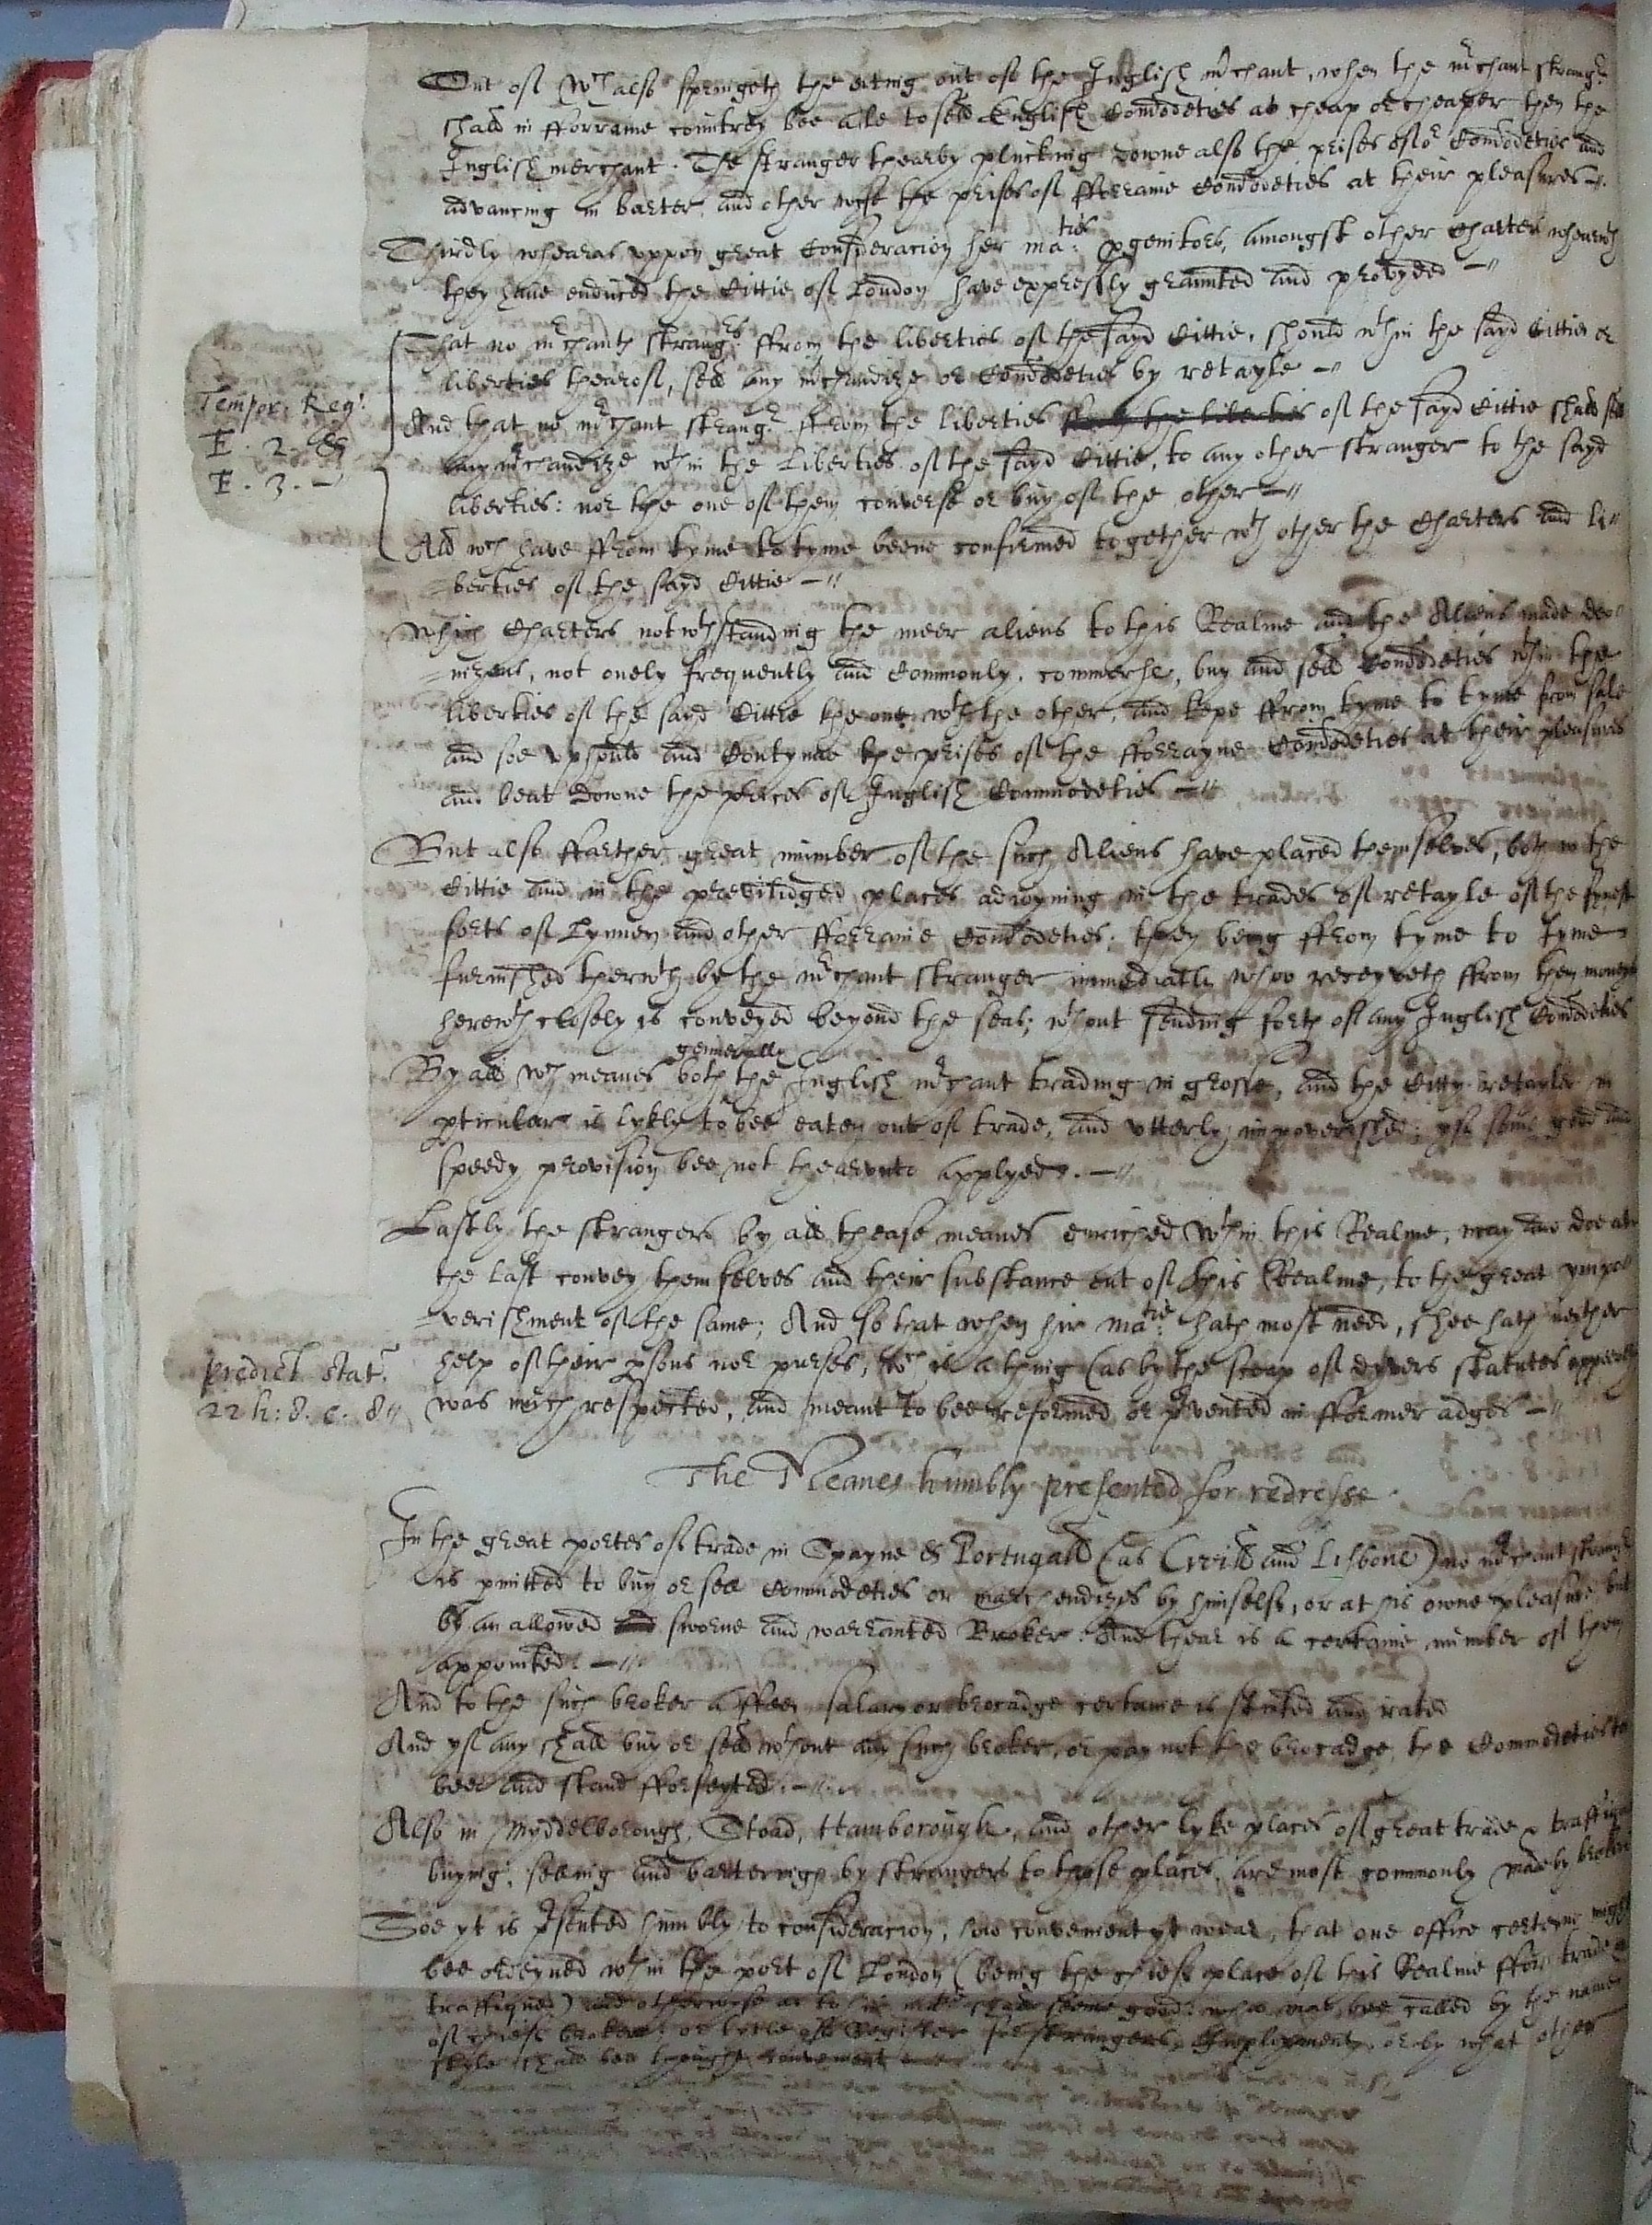 Out of wch also springeth the eating out of the Inglish mrchant, when the mrchant strangr
shall in fforraine countrey bee able to sell English Comodeties as cheap or cheaper then the
Inglish merchant. The stranger thearby plucking downe also the prises of or Comodeties and
advancing in barter and other wise the prises of fforraine Comodeties at their pleasures
Thirdly whearas uppon great Consideracion her maties pgenitors, amongst other Charters whearwth
they have endued the Cittie of London have expressly graunted and provyded
That no mrchants strangrs ffrom the liberties of the sayd Cittie, should wthin the sayd Cittie or
liberties thearof, sell any mrchandize or Comodeties by retayle
Temper: Reg:
E. 2. &
E. 3.
And that no mrchant strangr ffrom the liberties of the sayd Cittie shall sell
any mrchandize wthin the Liberties of the sayd Cittie, to any other stranger to the sayd
liberties: nor the one of them converse or buy of the other
All wch have ffrom tyme to tyme beene confirmed together wth other the Charters and li
berties of the sayd Cittie
Which Charters notwthstanding the meer aliens to this Realme and the Aliens made den
nizens, not onely frequently and Commonly, commerse, buy and sell Comodeties wthin the
liberties of the sayd Cittie the one wth the other, and kepe ffrom tyme to tyme from sale
and soe uphold and Contynue the prises of the fforrayne Comodeties at their pleasures
and beat downe the prices of Inglish Commodeties
But also ffarther great number of the such Aliens have placed themselves, both in the
Cittie and in the previlidged places adioyning in the trades of retayle of the fynest
sorts of Lynnen and other fforraine Comodeties: they being ffrom tyme to tyme
furnished therwth by the mrchant stranger immediatli whoo receyveth ffrom them moneys
herewth closely is conveyed beyond the seas; wthout sending forth of any Inglish Comodeties
generally
By all wch meanes both the Inglish mrchant trading in grosse, and the Citty retayler in
pticular is lykly to bee eaten out of trade, and utterly impoverished; yf some good and
speedy provision bee not thearunto applyed.
Lastly the strangers by all thease meanes enriched wthin this Realme, may and doe at
the last convey themselves and their substance out of this Realme, to the great ympo
verishment of the same; And so that when hir matie hath most need, shee hath neither
predict Stat.
22 h: 8. c. 8
help of their psons nor purses, wch is a thing (as by the scop of dyvers statutes appeareth
was much respected, and meant to bee reformed or pvented in fformer adges
The Meanes humbly presented for redresse
In the great portes of trade in Spayne & Portugall (as Civill and Lisbone) no mrchant stranger
is pmitted to buy or sell Commodeties or marchendizes by himselfe, or at his owne pleasure but
by an allowed sworne and warranted Broker: And thear is a certaine number of them
appointed.
And to the such broker a ffee salary or brocadge certaine is stented and rated
And yf any shall buy or sell wthout any such broker, or pay not the brocadge, the Commodeties to
bee and stand fforfeyted.
Also in Myddelborough, Stoad, Hamborough, and other lyke places of great trade & traffique
buying, selling and bartering by strangers to those places, are most commonly made by broker
Soe yt is psented humbly to consideracion, how convenient yt wear, that one office certeyne might
bee ordeyned wthin the port of London (being the chiefe place of this Realme ffor trade &
traffiqued) and otherwyse as to hir matie shall seeme good: who may bee called by the name
of chiefe broker: or lyke of Register for strangers Employment, or by what other
style shall bee thought Convenient